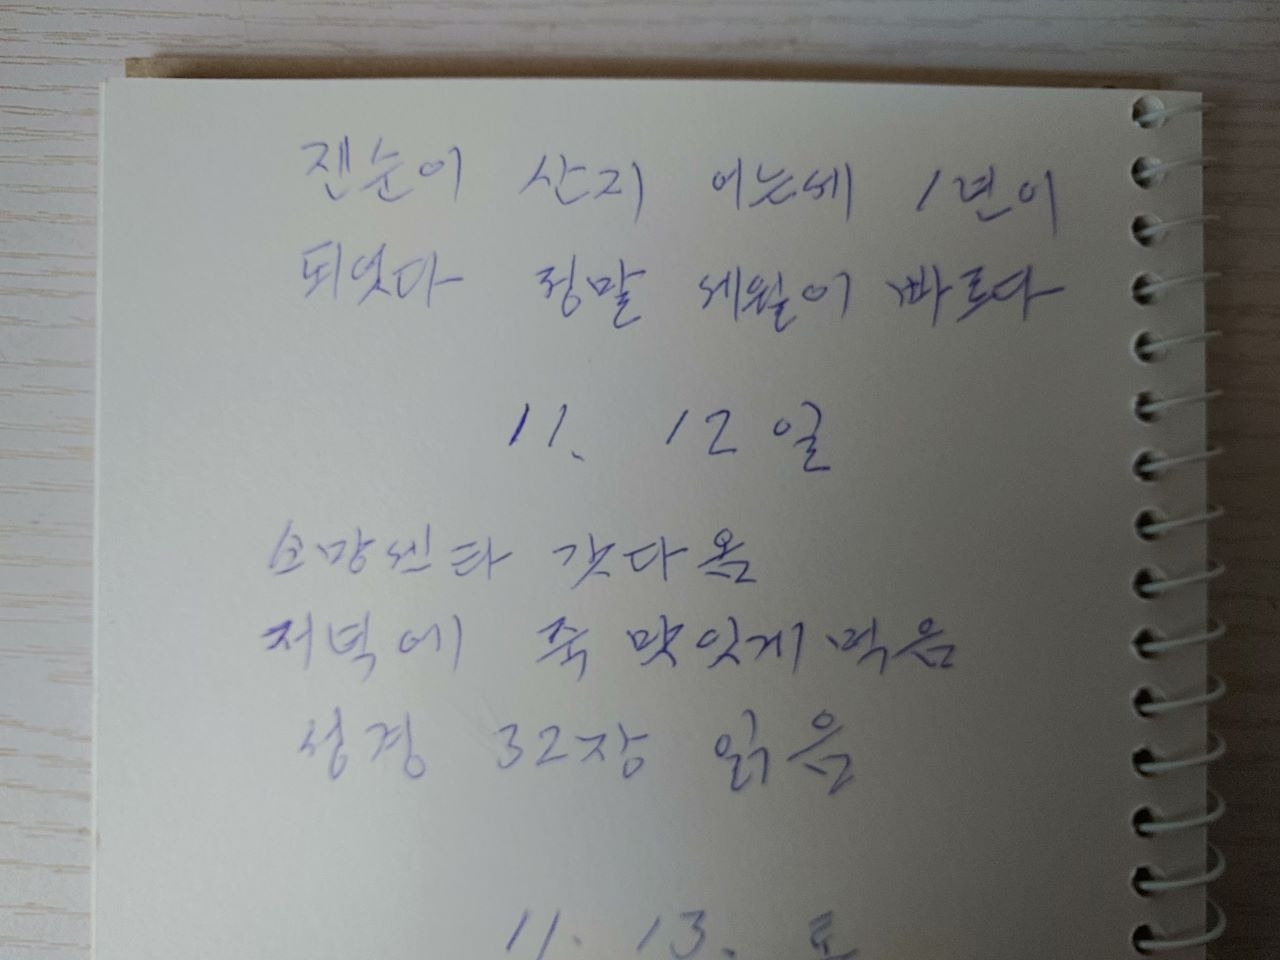 잰순이 산지 어는세 1년이
되엇다 정말 세월이 빠르다
11. 12일
소망센타 갓다옴
저녁에 죽 맛잇게 먹음
성경 32장 읽음
11. 13. 토